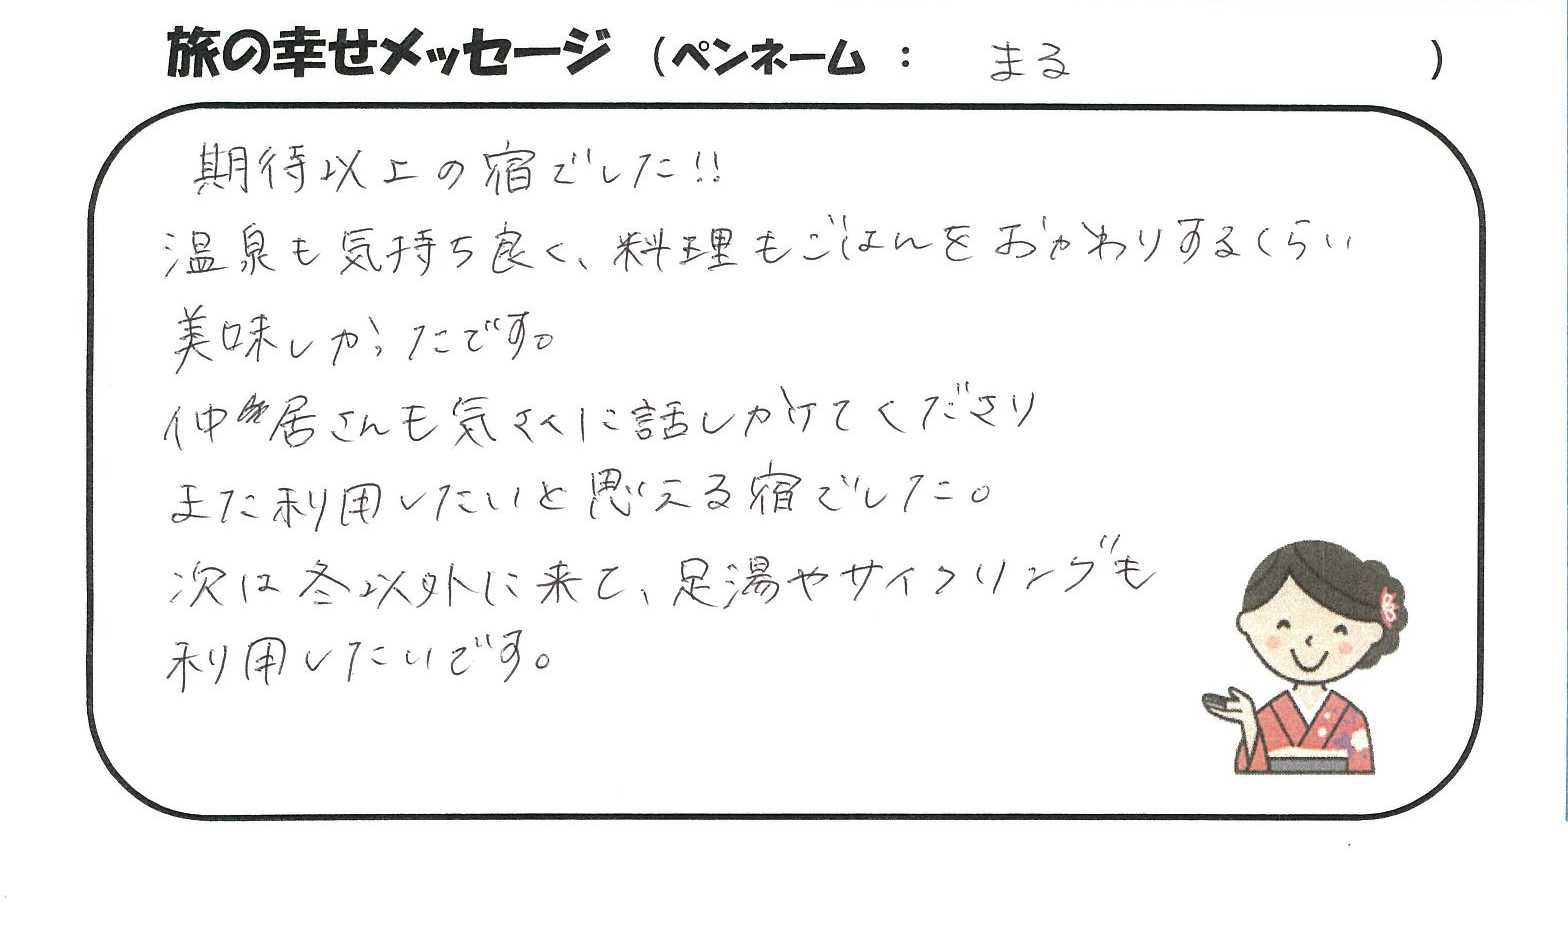 旅の幸せメッセージ（ペンネーム ： まる ）
期待以上の宿でした!!
温泉も気持ち良く、料理もごはんをおかわりするくらい
美味しかったです。
仲居さんも気さくに話しかけてくださり
また利用したいと思える宿でした。
次は冬以外に来て、足湯やサイクリングも
利用したいです。